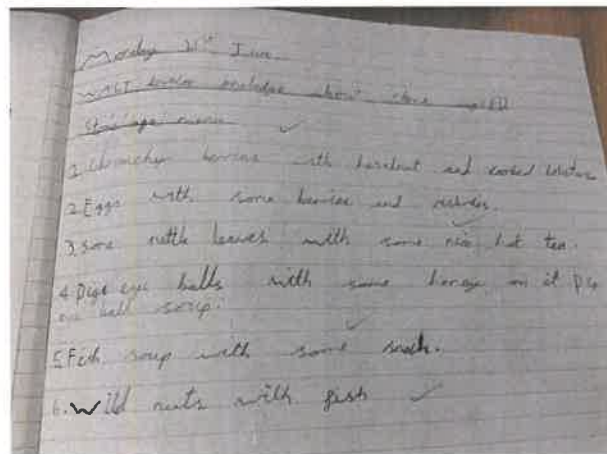 Monday 21st June
WALT develop knowledge about stone
Stone age menu
1. berries with hazelnut and cooked
2. Eggs with some berries and
3. Some nettle leaves with some nice hot tea.
4. Pigs eye balls with some honey on it Pig
eye ball soup.
5. Fish soup with some
6. Wild nuts with fish